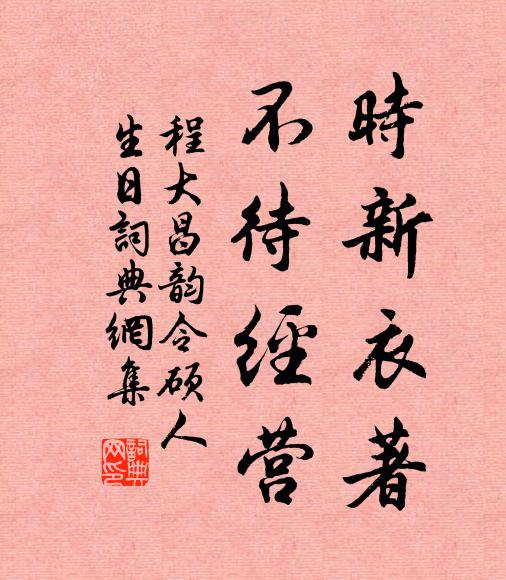 時新衣著
不待經营
程大昌韵令硕人
生日詞典網集
詞典
网印